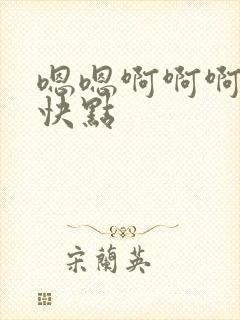 嗯嗯啊啊啊
快點
宋蘭英